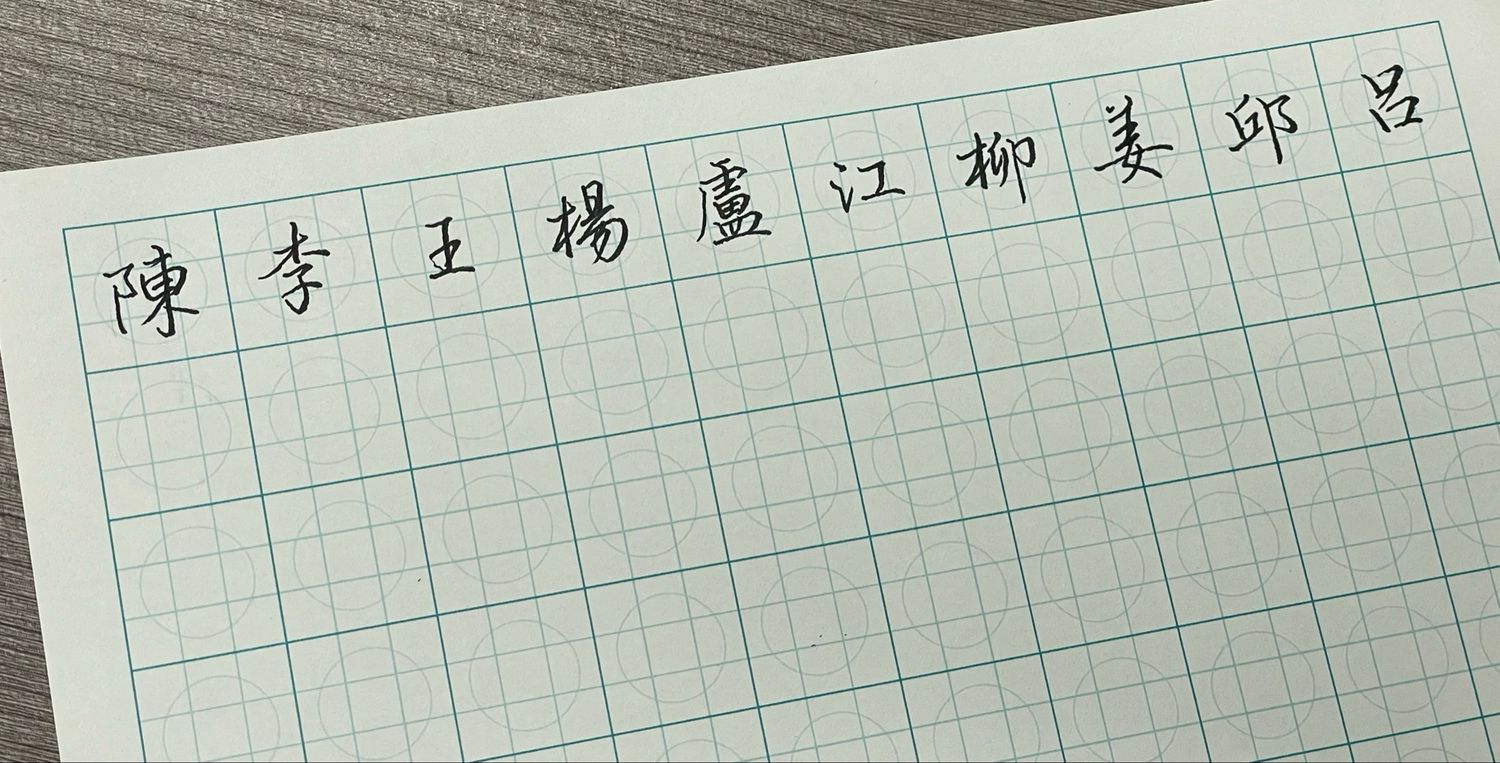 陳李王楊盧江柳姜邱呂